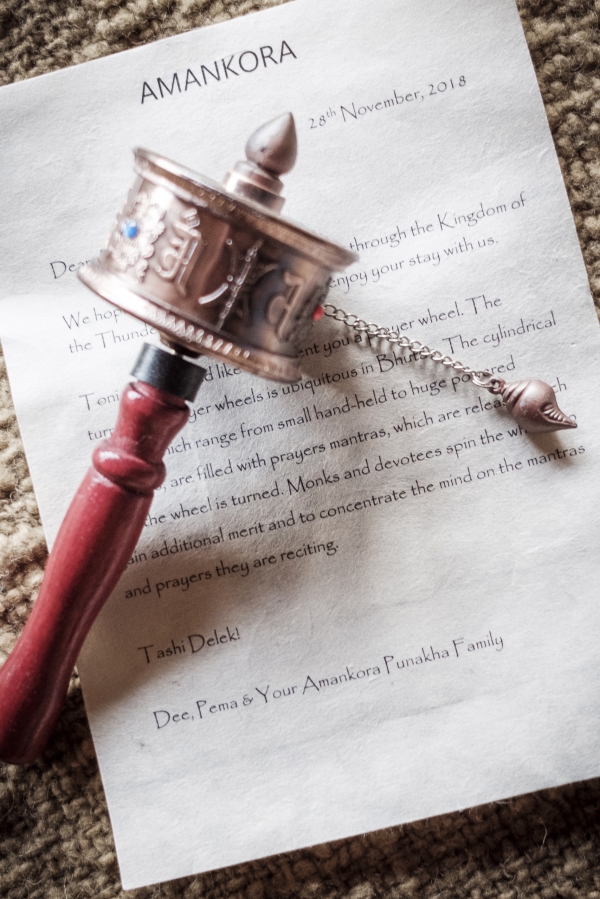 AMANKORA
28th November, 2018
through the Kingdom of
We enjoy your stay with us.
the
you a prayer wheel. The
wheels is ubiquitous in Bhutan. The cylindrical
which range from small hand-held to huge powered
are filled with prayers mantras, which are
the wheel is turned. Monks and devotees spin the
additional merit and to concentrate the mind on the mantras
and prayers they are reciting.
Tashi Delek!
Dee, Pema & Your Amankora Punakha Family